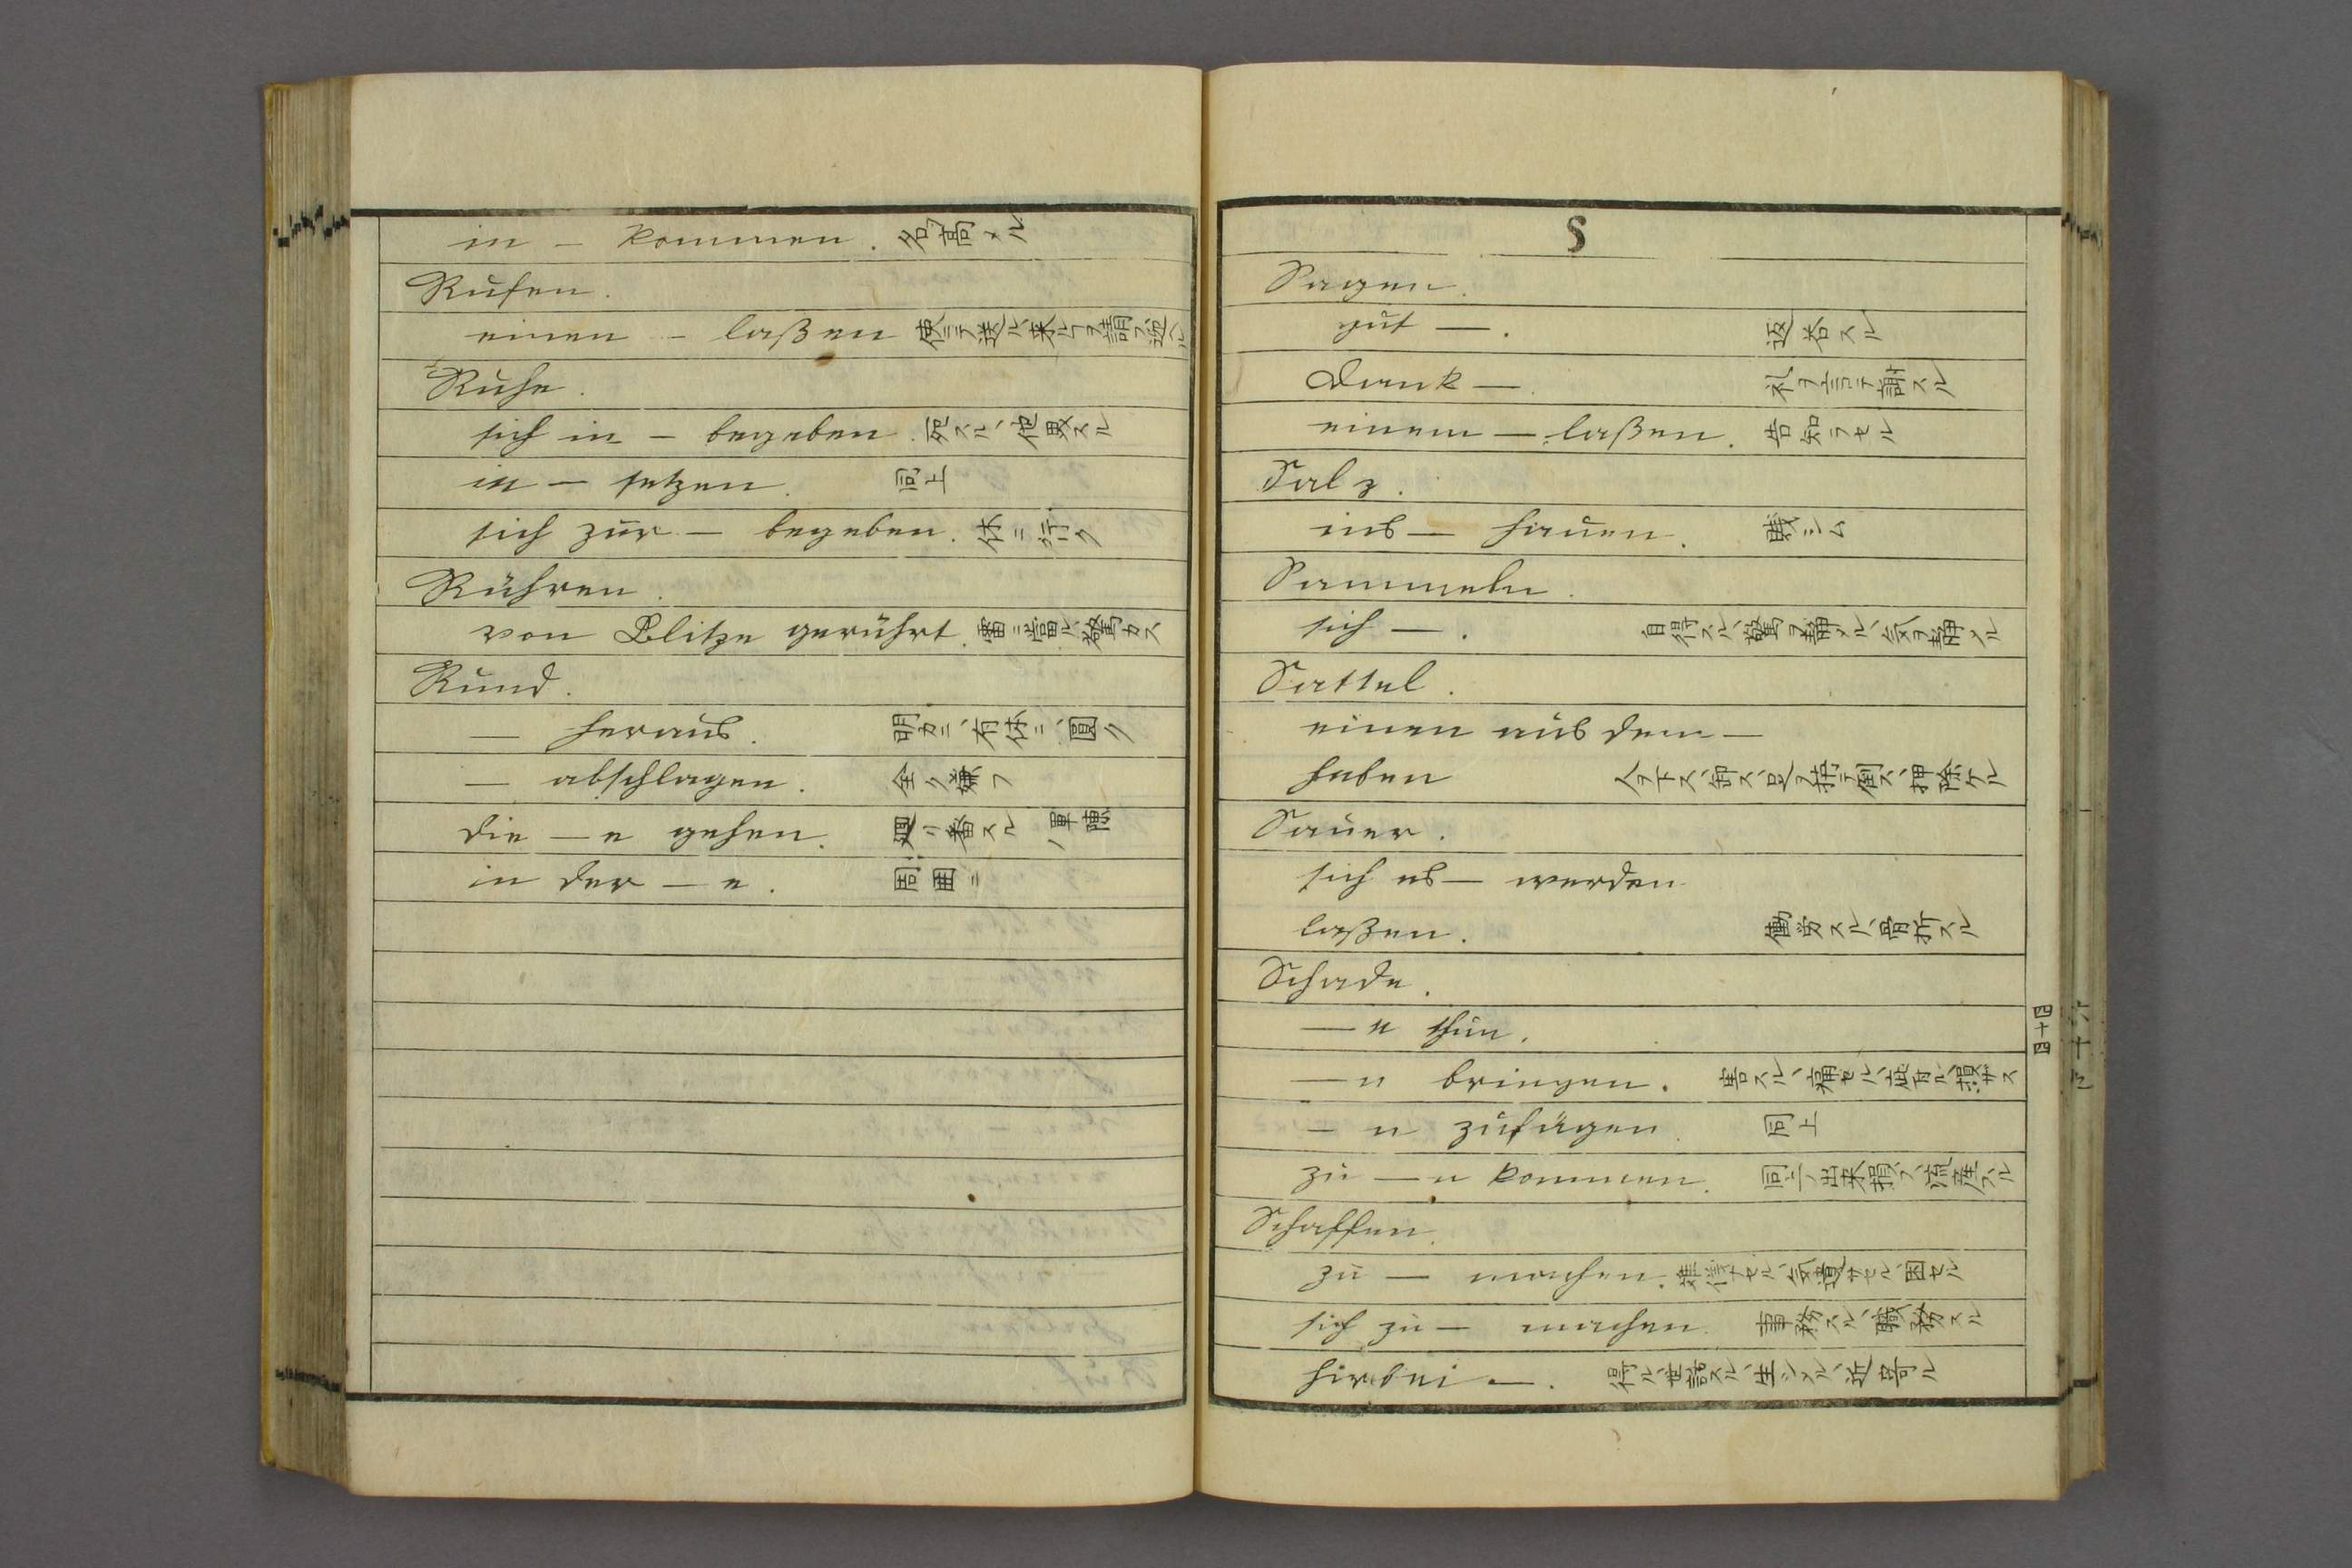 in — kommen. 名高メル
Rufen.
einen — laßen 使ニテ送ル、来ルヲ請フ、迎ヘル
Ruhe.
sich in — begeben. 死スル、他界スル
in — setzen. 同上
sich zur — begeben. 休ニ行ク
Rühren.
von Blitze gerührt. 雷ニ當ル、驚カス
Rund.
— heraus. 明カニ、有体ニ、圓ク
— abschlagen. 全ク嫌フ
die — e gehen. 廻リ番スル
in der — e. 周囲ニ
S
Sagen.
gut —. 返答スル
Dank —. 礼ヲ言テ謝スル
einem — laßen. 告知ラセル
Salz.
ins — hauen.
Sammeln.
sich —. 自得スル、驚ヲ靜メル、気ヲ靜メル
Sattel.
einen aus dem —
heben
Sauer.
sich es — werden
laßen. 働労スル、骨折スル
Schade.
— n thun.
— n bringen. 害スル、痛セル
— n zufügen. 同上
zu — n kommen.
Schaffen.
zu — machen.
sich zu — machen. 事務スル、職務スル
hirbei —. 得ル、世話スル、生ジメル、近寄ル
四十四